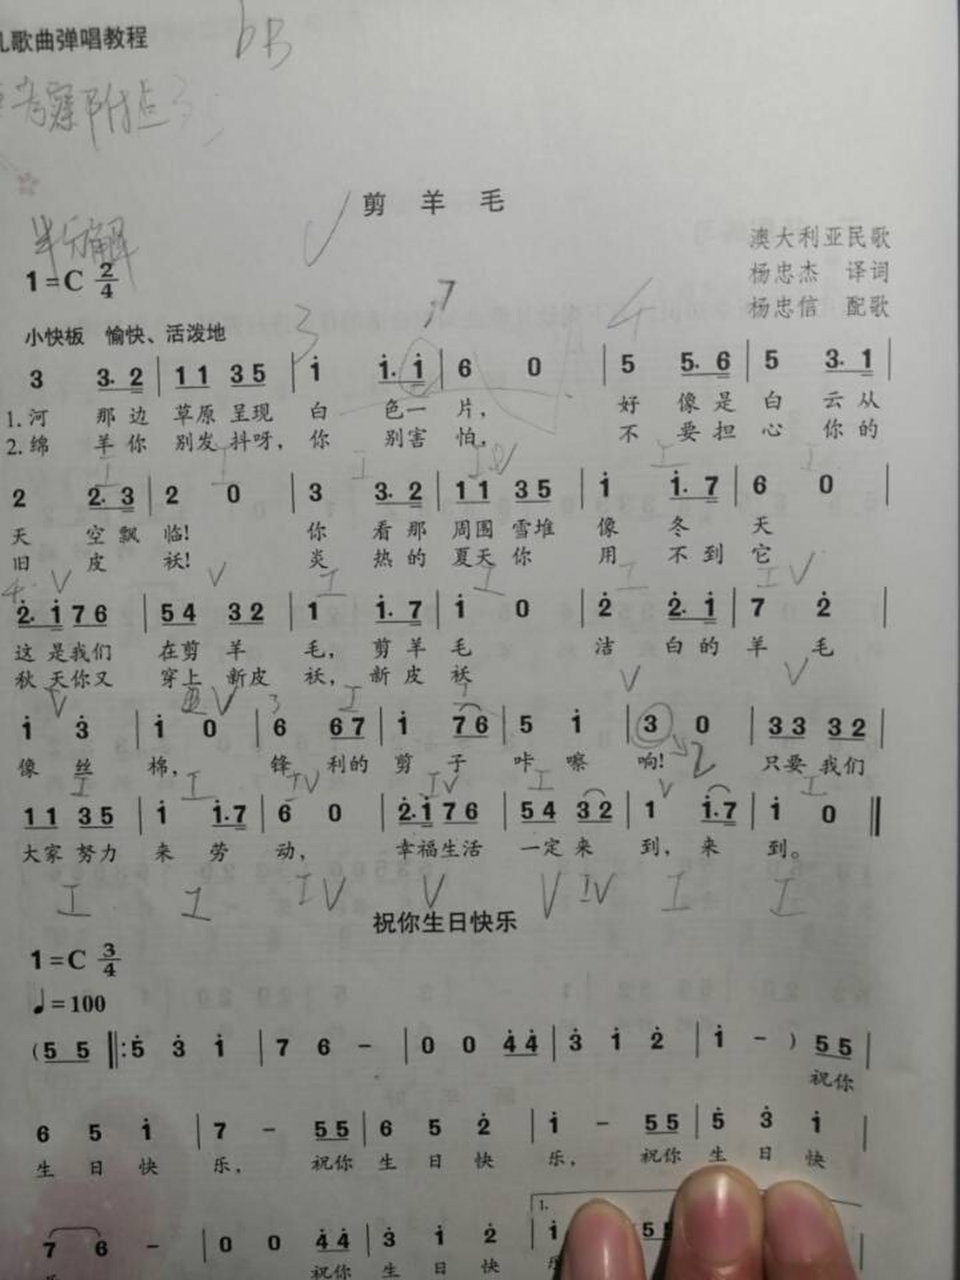 儿歌曲弹唱教程
bB
考察附点
半分解
剪 羊 毛
澳大利亚民歌
杨忠杰 译词
杨忠信 配歌
1=C 2/4
小快板 愉快、活泼地
3 7 4
3 3. 2 | 1 1 3 5 | i i. i | 6 0 | 5 5. 6 | 5 3. 1 |
1. 河 那 边 草原 呈现 白 色一 片, 好 像 是 白 云 从
2. 绵 羊 你 别发 抖呀, 你 别害 怕, 不 要 担 心 你 的
I I I IV I I
2 2. 3 | 2 0 | 3 3. 2 | 1 1 3 5 | i i. 7 | 6 0 |
天 空 飘 临! 你 看 那 周围 雪堆 像 冬 天
旧 皮 袄! 炎 热 的 夏天 你 用 不 到 它
V V I I I IV
2. i 7 6 | 5 4 3 2 | 1 i. 7 | i 0 | 2 2. i | 7 2 |
这 是我们 在剪 羊 毛, 剪 羊 毛 洁 白 的 羊 毛
秋 天你又 穿上 新皮 袄, 新 皮 袄
V V I I V V
i 3 | i 0 | 6 6 7 | i 7 6 | 5 i | 3 0 | 3 3 3 2 |
像 丝 棉, 锋 利的 剪 子 咔 嚓 响! 2 只要 我们
I I IV IV I V I
1 1 3 5 | i i. 7 | 6 0 | 2. i 7 6 | 5 4 3 2 | 1 i. 7 | i 0 ‖
大家 努力 来 劳 动, 幸福生活 一定 来 到, 来 到。
I I IV V V IV I I
祝你生日快乐
1=C 3/4
♩=100
(5 5 ‖: 5 3 i | 7 6 – | 0 0 4 4 | 3 1 2 | i – ) 5 5 |
祝你
6 5 i | 7 – 5 5 | 6 5 2 | i – 5 5 | 5 3 i |
生 日 快 乐, 祝你 生 日 快 乐, 祝你 生 日 快
1.
7 6 – | 0 0 4 4 | 3 i 2 | i 5 5
祝你 生 日 快